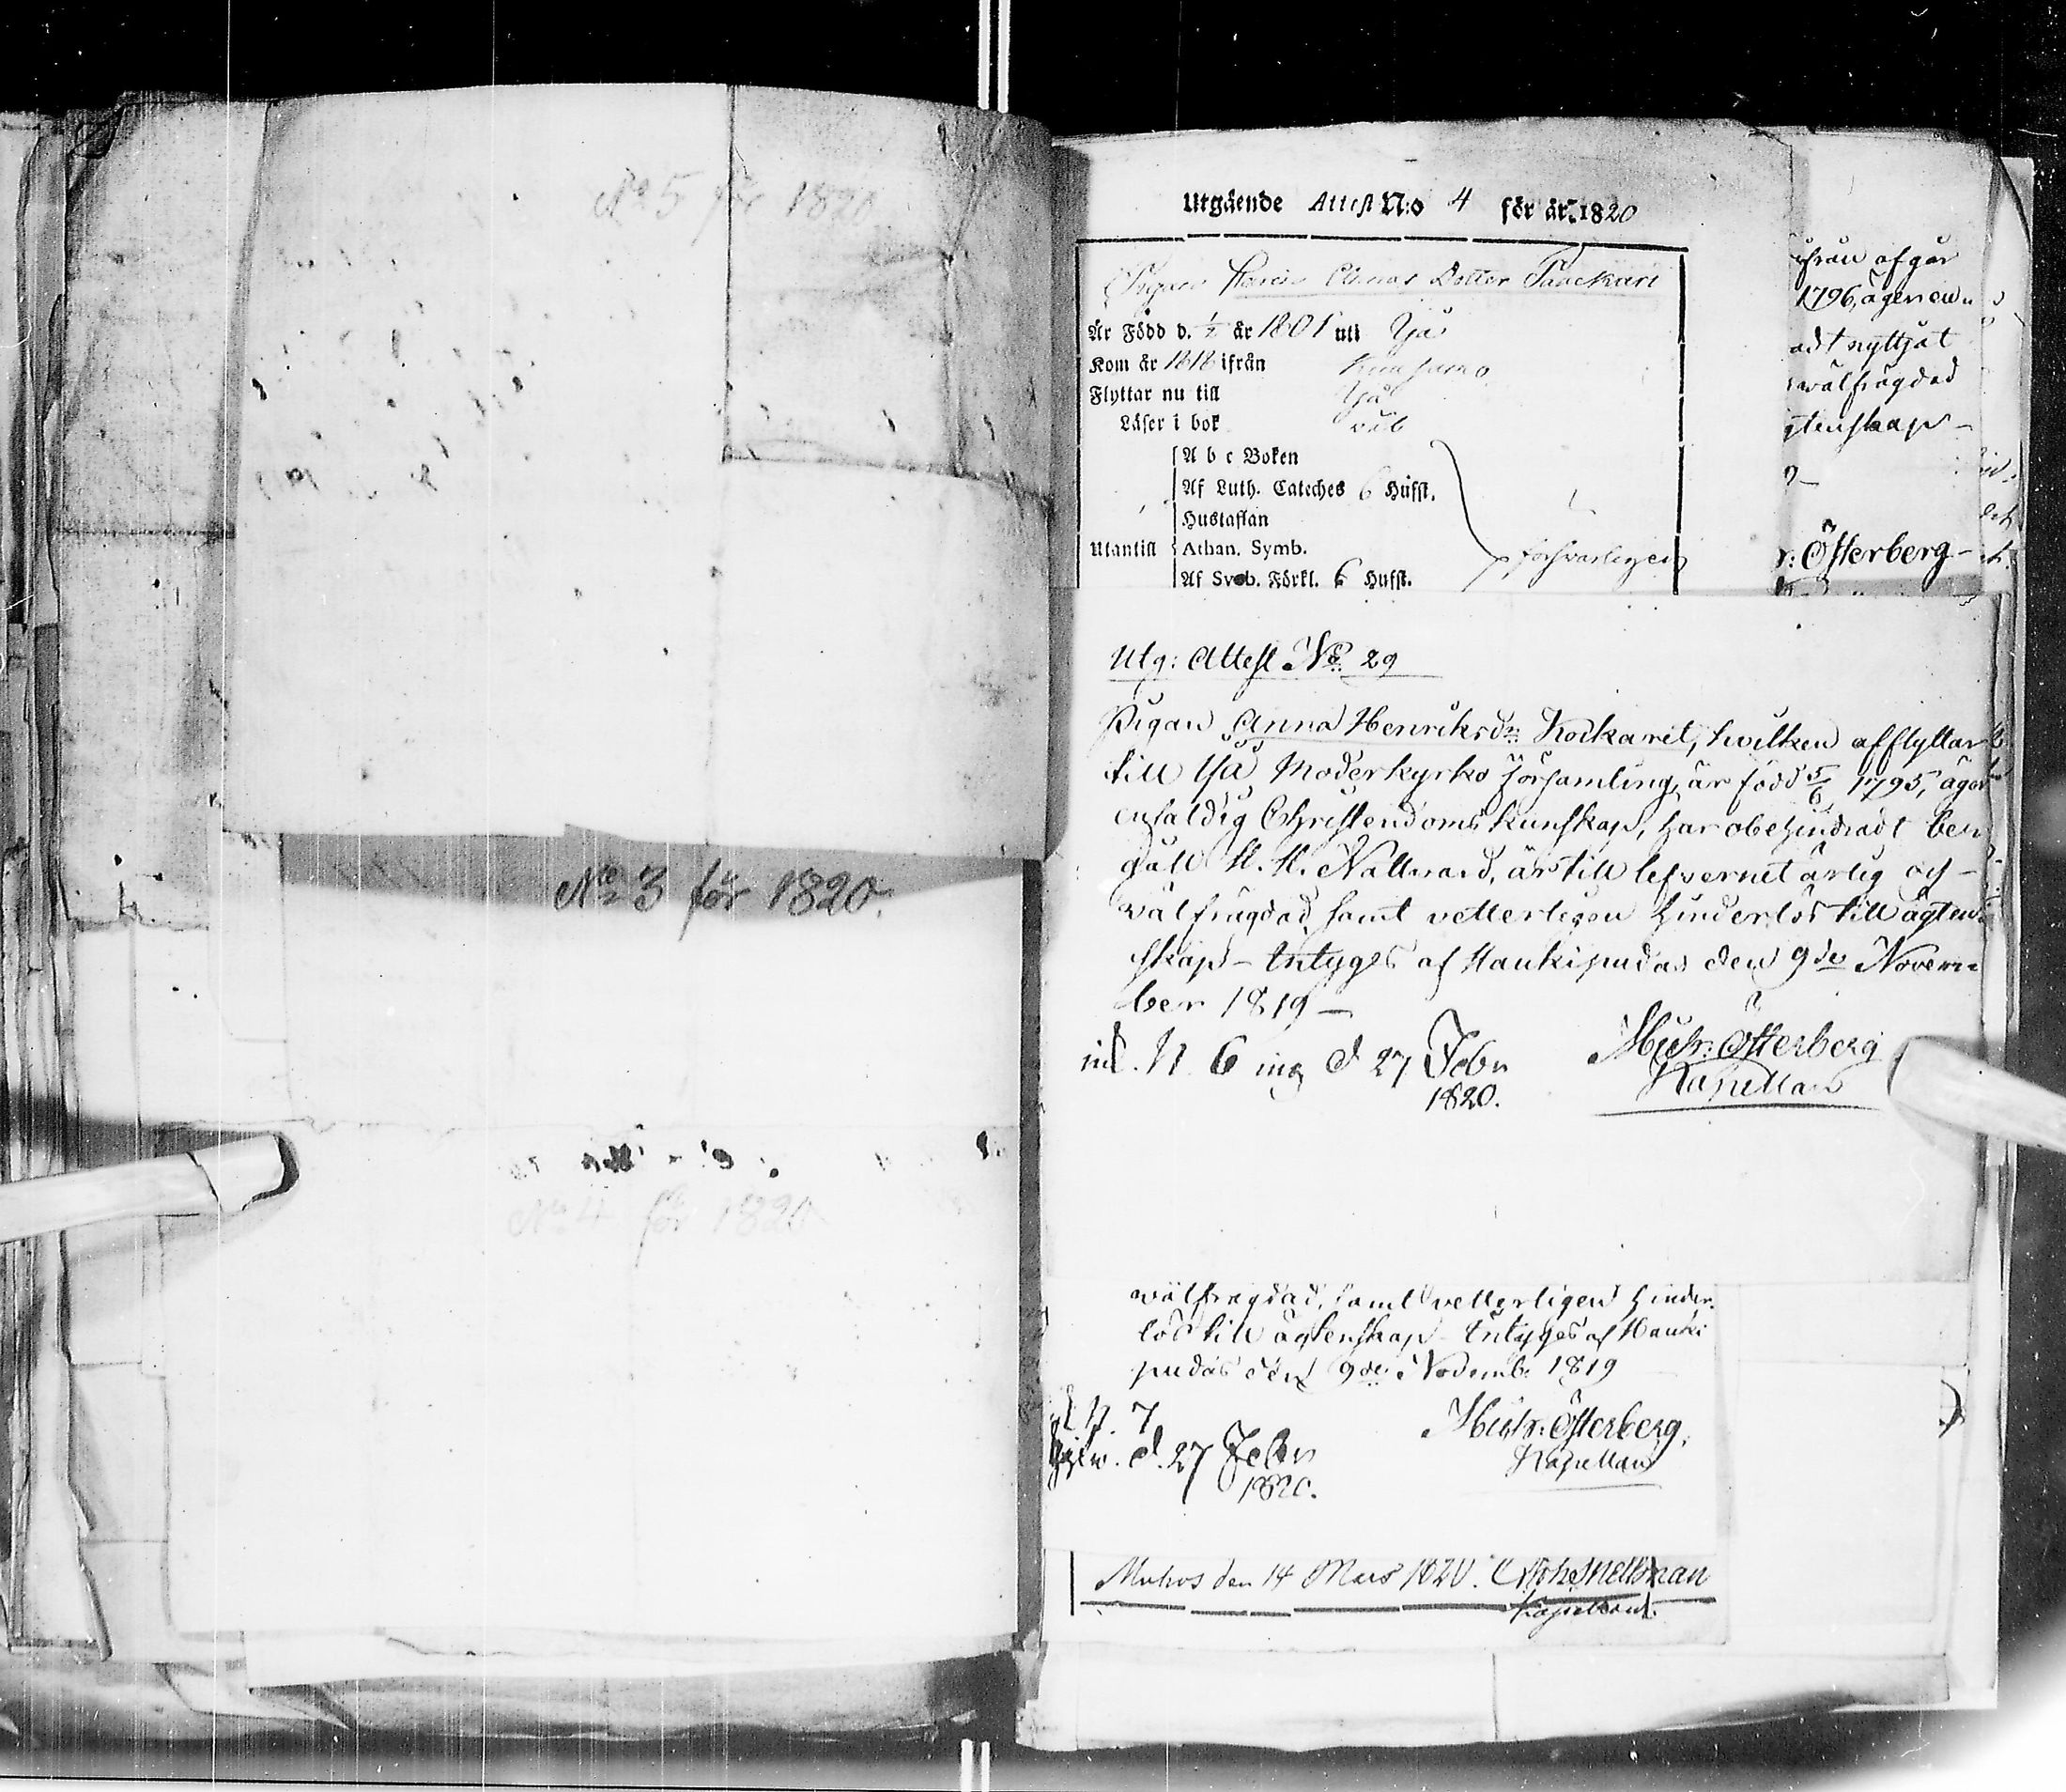 No 5 för 1820
No 3 för 1820.
No 4 för 1820
Utgående Attest N:o 4 för år 1820
Pigan Dotter
Är Född d. 1/2 år 1801 uti Ijå
Kom år 1818 ifrån
Flyttar nu till Ijå
Läser i bok väl
A b c Boken
Af Luth. Cateches 6 Hufst.
Hustaflan
Utantill Athan. Symb. försvarligen
Af Sveb. Förkl. 6 Hufst.
ifrån afgår
1796, äger en
adt nyttjat
wälfrägdad
gtenskap –
r: Österberg –
Utg: Attest No 29
Pigan Anna Henriksdr Kockaret, hvilken afflyttar
till Ijå Moderkyrko Församling, är född 5/6 1795, äger
enfaldig Christendoms kunskap, har obehindradt be
gått H. H. Nattvard, är till lefvernet ärlig och
välfrägdad, samt vetterligen hinderlös till ägten
skap – Intygas af Haukipudas den 9de Novem
ber 1819 –
inl. N. 6 ing d 27 Febr
1820.
Österberg
Kapellan
wälfrägdad, samt vetterligen hinder
lös till ägtenskap – Intygas af Hauki
pudas den 9de Novemb. 1819
N. 7
d. 27 Febr
1820.
Österberg.
Kapellan
Muhos den 14 Mars 1820. Snellman
Kapellan.